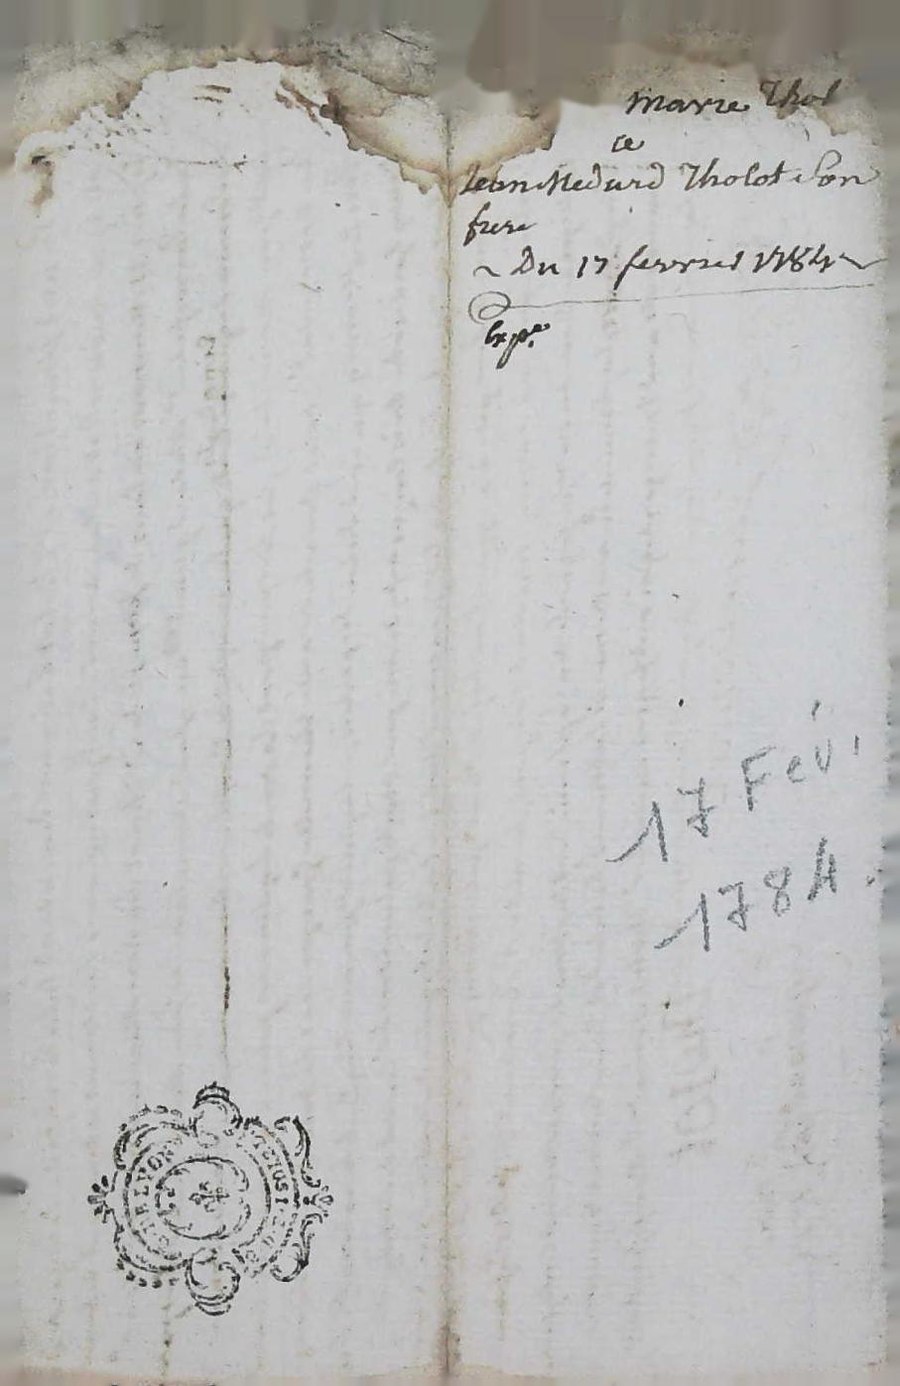 Marie Thol
ce
Jean Medard Tholot Son
frere
~ Du 17 fevrier 1784 ~
Expe.
17 Fév.
1784.
LYON